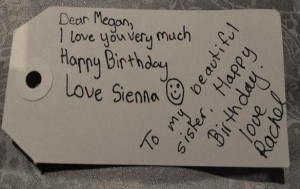 Dear Megan,
I love you very much
Happy Birthday
Love Sienna
To my beautiful
sister. Happy
Birthday!
love
Rachel